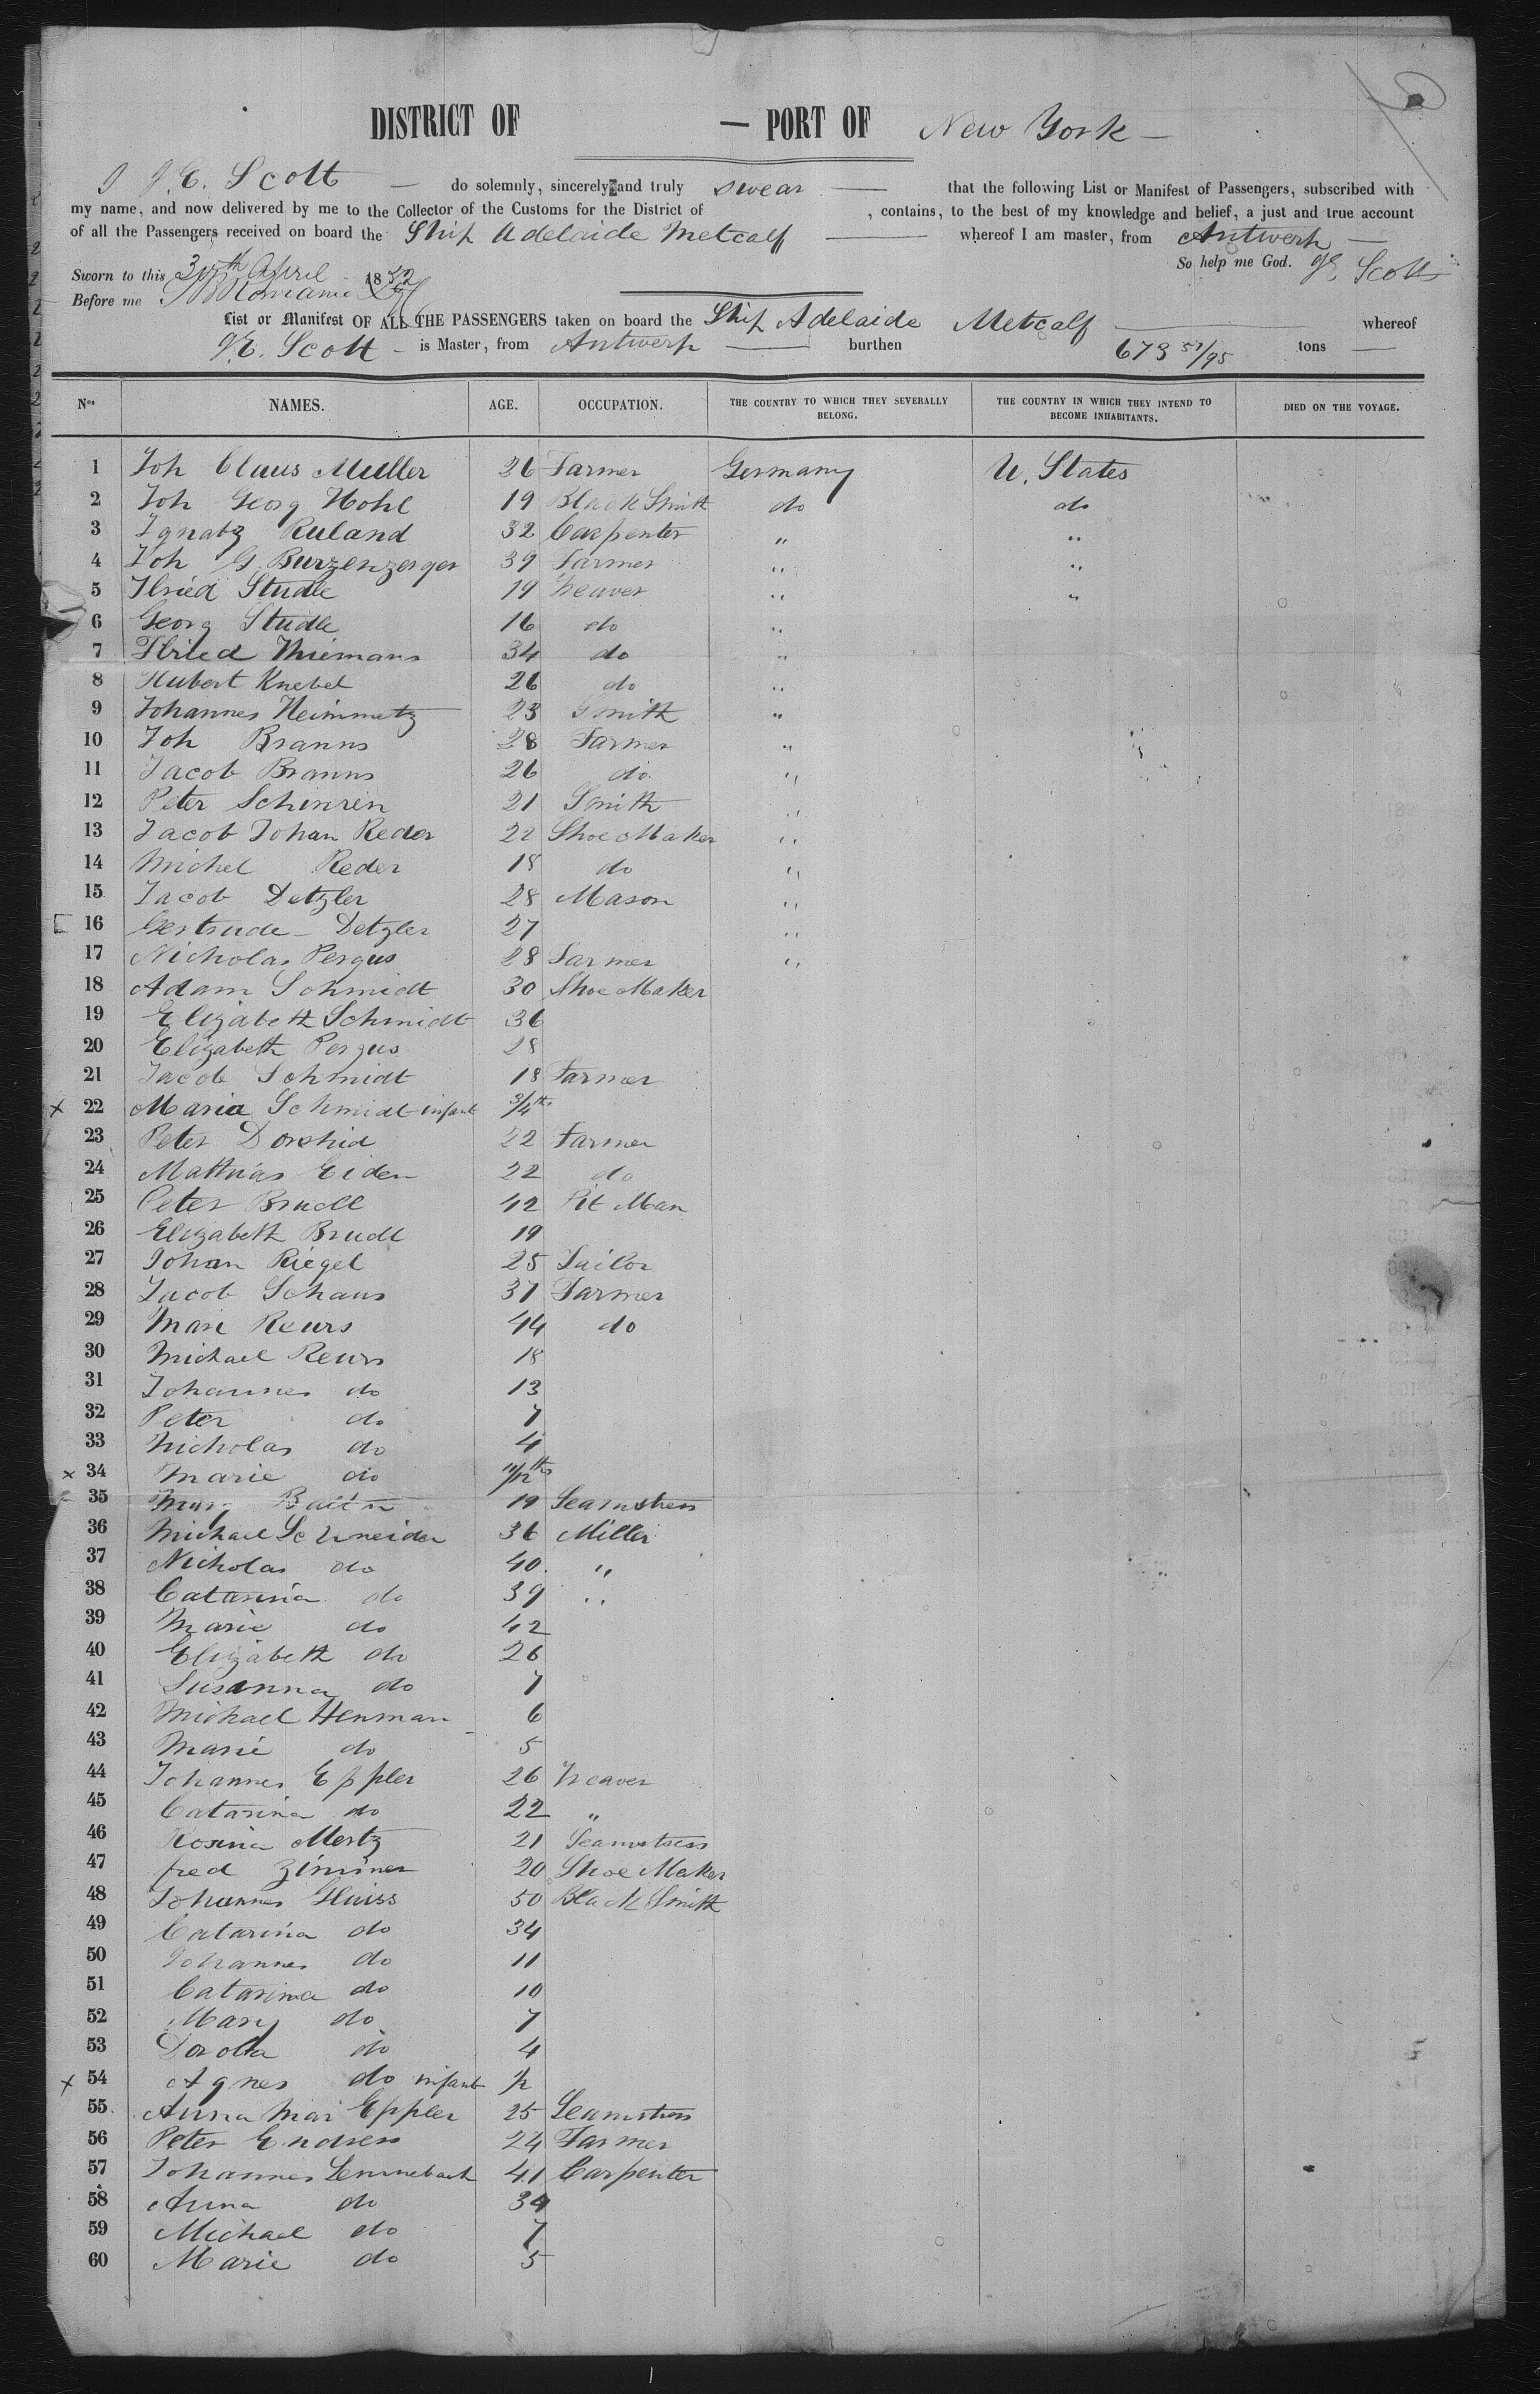 DISTRICT OF — PORT OF New York —
I J.E. Scott — do solemnly, sincerely and truly swear — that the following List or Manifest of Passengers, subscribed with
my name, and now delivered by me to the Collector of the Customs for the District of , contains, to the best of my knowledge and belief, a just and true account
of all the Passengers received on board the Ship Adelaide Metcalf — whereof I am master, from Antwerp —
So help me God. J.E. Scott
Sworn to this 30th April 1852
Before me
List or Manifest OF ALL THE PASSENGERS taken on board the Ship Adelaide Metcalf — whereof
J.E. Scott — is Master, from Antwerp — burthen 673 57/95 tons —
Nos. NAMES. AGE. OCCUPATION. THE COUNTRY TO WHICH THEY SEVERALLY BELONG. THE COUNTRY IN WHICH THEY INTEND TO BECOME INHABITANTS. DIED ON THE VOYAGE.
1 Joh Claus Muller 26 Farmer Germany U. States
2 Joh Georg Hohl 19 Black Smith do do
3 Ignatz Ruland 32 Carpenter " "
4 Joh G. Burzenzerger 39 Farmer " "
5 Fried Studle 19 Weaver " "
6 Georg Studle 16 do "
7 Fried Thiemans 34 do "
8 Hubert Knebel 26 do "
9 Johannes Heimmetz 23 Smith "
10 Joh Branns 28 Farmer "
11 Jacob Branns 26 do "
12 Peter Schinren 21 Smith "
13 Jacob Johan Reder 22 Shoe Maker "
14 Michel Reder 18 do "
15 Jacob Detzler 28 Mason "
16 Gertrude Detzler 27 "
17 Nicholas Pergus 28 Farmer "
18 Adam Schmidt 30 Shoe Maker
19 Elizabeth Schmidt 36
20 Elizabeth Pergus 28
21 Jacob Schmidt 18 Farmer
x 22 Maria Schmidt infant 3/4ths
23 Peter Dorshid 22 Farmer
24 Mathias Eiden 22 do
25 Peter Brudl 42 Pit Man
26 Elizabeth Brudl 19
27 Johan Riegel 25 Tailor
28 Jacob Schaus 37 Farmer
29 Mari Reurs 44 do
30 Michael Reurs 18
31 Johannes do 13
32 Peter do 7
33 Nicholas do 4
x 34 Marie do 11/12ths
35 Mary 19 Seamstress
36 Michael Schneider 36 Miller
37 Nicholas do 40 "
38 Catarina do 39 "
39 Marie do 42
40 Elizabeth do 26
41 Susanna do 7
42 Michael Henman 6
43 Marie do 5
44 Johannes Eppler 26 Weaver
45 Catarina do 22 "
46 Rosina Mertz 21 Seamstress
47 fred Zimmer 20 Shoe Maker
48 Johannes Gluiss 50 Black Smith
49 Catarina do 34
50 Johannes do 11
51 Catarina do 10
52 Mary do 7
53 Dorotha do 4
x 54 Agnes do infant
55 Anna Mari Eppler 25 Seamstress
56 Peter Endress 24 Farmer
57 Johannes Lennebach 41 Carpenter
58 Anna do 34
59 Michael do 7
60 Marie do 5